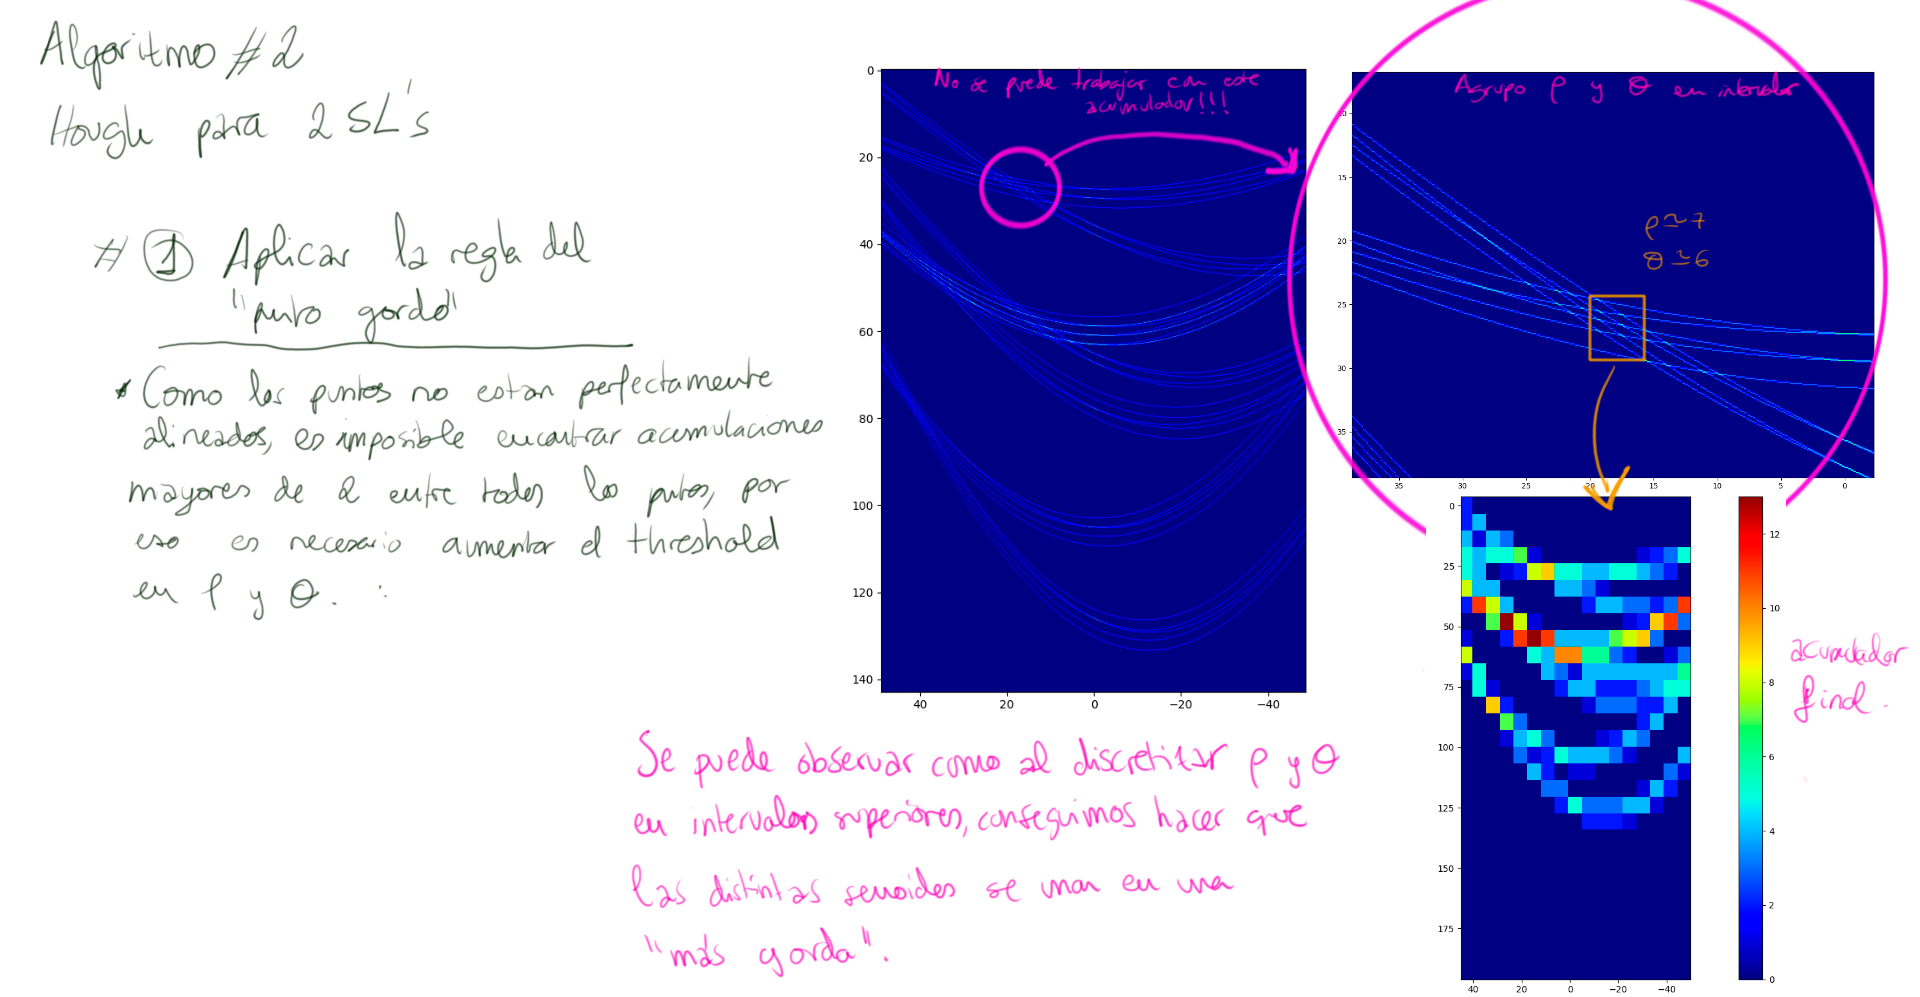 Algoritmo #2
Hough para 2 SL's
# ① Aplicar la regla del
"punto gordo"
* Como los puntos no estan perfectamente
alineados, es imposible encontrar acumulaciones
mayores de 2 entre todos los puntos, por
eso es necesario aumentar el threshold
en ρ y θ. :
No se puede trabajar con este
acumulador!!!
0
20
40
60
80
100
120
140
40 20 0 −20 −40
Agrupo ρ y θ en intervalos
10
15
20
25
30
35
ρ≃7
θ≃6
35 30 25 20 15 10 5 0
0
25
50
75
100
125
150
175
40 20 0 −20 −40
12
10
8
6
4
2
0
acumulador
final.
Se puede observar como al discretizar ρ y θ
en intervalos superiores, conseguimos hacer que
las distintas senoides se unan en una
"más gorda".